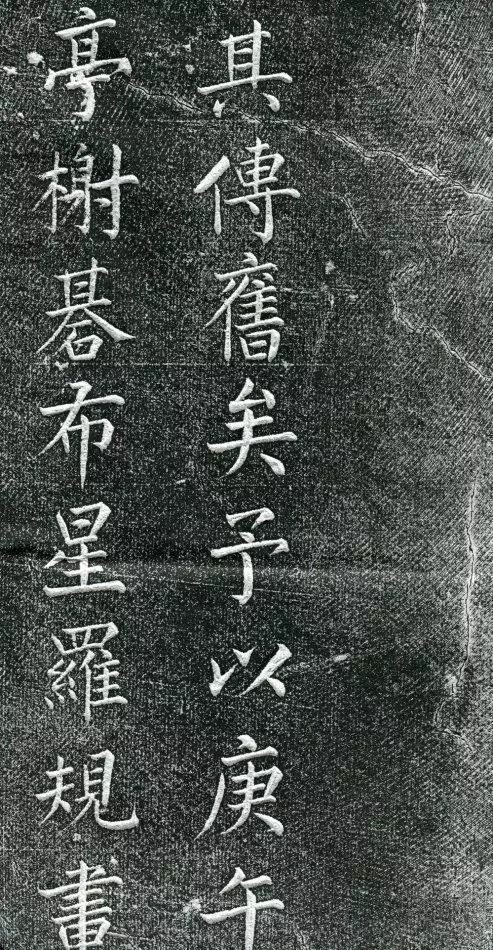 其傳舊矣予以庚午
亭榭碁布星羅規畫